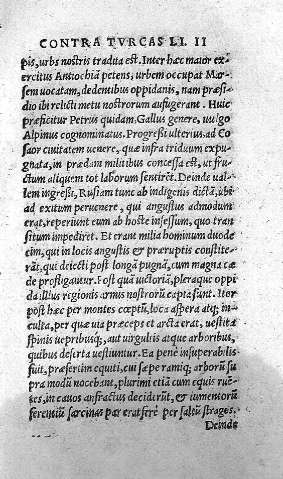 CONTRA TVRCAS LI. II
pis, urbs nostris tradua est. Inter hæc maior ex-
ercitus Antiochiã petens, urbem occupat Mar-
sem uocatam, dedentibus oppidanis, nam præsi-
dio ibi relicti metu nostrorum aufugerant. Huic
præficitur Petrus quidam. Gallus genere, uulgo
Alpinus cognominatus. Progressi ulterius ad Co
sor ciuitatem uenere, quæ infra triduum expu-
gnata, in prædam militibus concessa est, ut fru-
ctum aliquem tot laborum sentirēt. Deinde ual-
lem ingressi, Rusiam tunc ab indigenis dictã, ubi
ad exitum peruenere, qui angustus admodum
erat, reperiunt eum ab hoste insessum, quo tran
situm impediret. Et erant milia hominum duode
cim, qui in locis angustis & præruptis constite-
rūt, qui deiecti post longã pugnã, cum magna cæ
de profligantur. Post quã uictoriã, pleraque oppi
da illius regionis armis nostrorū capta sunt. Iter
post hæc per montes cœptū, loca aspera atq; in-
culta, per quæ uia præceps et arcta erat, uestita
spinis uepribusq;, aut uirgultis atque arboribus,
quibus deserta uestiuntur. Ea penè insuperabilis
fuit, præsertim equiti, cui sæpe ramiq; arborū su
pra modū nocebant, plurimi etiã cum equis ruē-
tes, in cauos anfractus deciderūt, & iumentorū
ferentiū sarcinas par erat ferè per saltū strages.
Deinde